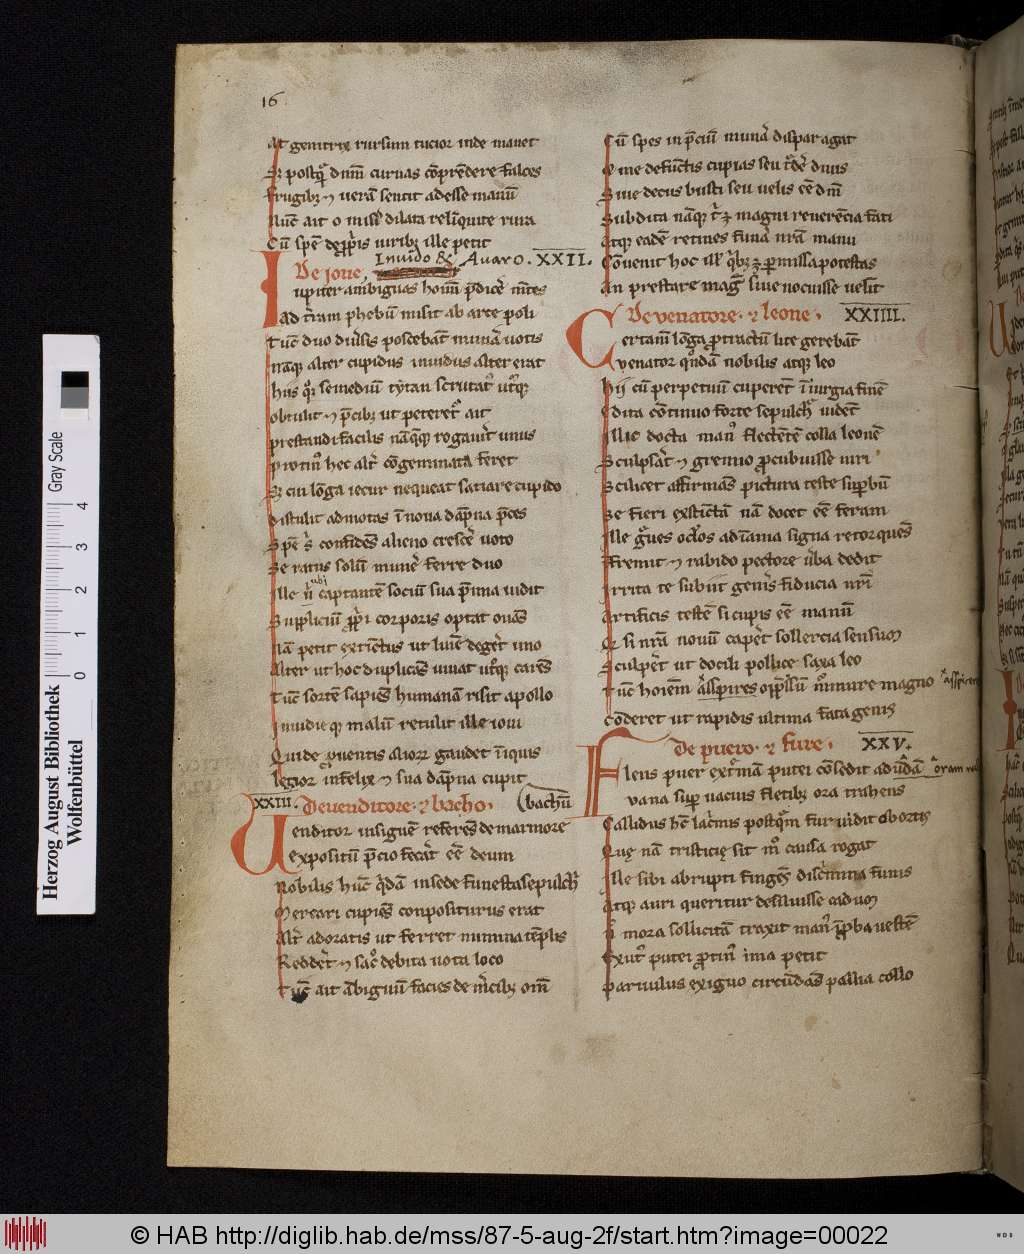 16
At genitrix rursum tucior inde manet
S; postq̃ dnm̄ curuas cōprendere falces
Frugib; ⁊ uerā sentit adesse manū
Nunc ait o miseri dilata relinquite rura
Cū spē de ꝓpriis uirib; ille petit
De ioue, Inuido & Auaro. XXII.
Iupiter ambiguas hominū p̄dicere m̄tes
Ad t̄ram phebum misit ab arce poli
Tūc duo diuersis poscebāt munera uotis
Nāq; alter cupidus inuidus alter erat
his q̄; se medium tytan scrutat᷒ utrūq;
obtulit ⁊ p̄cib; ut peteret᷒ ait
prestandi facilis nāq; rogauerit unus
protin᷒ hec alter cōgeminata feret
S; cui lōga iecur nequeat satiare cupido
distulit admotas ī noua dāpna p̄ces
Spē s͛ confidēs alieno crescere uoto
Se ratus solum munere ferre duo
Ille ubi captantē sociū sua p̄mia uidit
Suppliciū ꝓprii corporis optat ouās
Nā petit extinctus ut lumē degeret uno
Alter ut hoc duplicās uiuat utrōq; carēs
Tūc sortē sapiēs humanā risit apollo
Inuidieq; malum retulit ille ioui
Qui de ꝓuentis alioꝝ gaudet iniquis
letior infelix ⁊ sua dāpna cupit
XXIII. De uenditore ⁊ bacho. (bachū
Venditor insignē referēs de marmore
expositū p̄cio fecerat eē deum
Nobilis hūc quidā in sede funesta sepulchri
Mercari cupiēs conpositurus erat
Alter adoratis ut ferret numina tēplis
Redderet ⁊ sac᷒ debita uota loco
Tūc ait ābiguū facies de mercib; om̄
Cū spes in p̄ciū munera dispar agat
Et me defunctis cupias seu tradere diuis
Siue decus busti seu uelis eē dm̄
Subdita nāq; t͛ ē magni reuerēcia fati
Atq; eadē retines funera nr̄a manu
Cōuenit hoc illis quib; ē permissa potestas
An prestare magis siue nocuisse uelit
De uenatore ⁊ leone. XXIIII.
Certam lōga ꝓtractū lite gerebāt
venator quōdā nobilis atq; leo
hii cū perpetuū cuperēt ī iurgia finē
Edita cōtinuo forte sepulchra uidēt
Illic docta man᷒ flectētē colla leonē
Sculpserat ⁊ gremio ꝓcubuisse uiri
Scilicet affirmās pictura teste supbū
Se fieri exstinctā nā docet eē feram
Ille g̃ues oc͛los ad inania signa retorquēs
Fremit ⁊ rabido pectore uerba dedit
Irrita te subiit generis fiducia nr̄i
Artificis testē si cupis eē manū
Q; si nr̄a nouū caperet sollercia sensum
Sculperet ut docili pollice saxa leo
Tūc hoiēm asspiceres oppressū murmure magno asspiceres
cōderet ut rapidis ultima fata genis
De puero ⁊ fure. XXV.
Flens puer extremā putei cōsedit ad undā oram
vana sup uacuis fletib; ora trahens
Callidus hēc lacrimis postq̃m fur uidit obortis
Que nā tristicie sit m᷒ causa rogat
Ille sibi abrupti fingēs discrimina funis
Atq; auri queritur desiluisse cadum
N̄ mora sollicitā traxit man᷒ īproba uestē
Exut᷒ putei ꝓtin᷒ ima petit
Paruulus exiguo circūdās pallia collo
Herzog August Bibliothek
Wolfenbüttel
Gray Scale
0 1 2 3 4
© HAB http://diglib.hab.de/mss/87-5-aug-2f/start.htm?image=00022